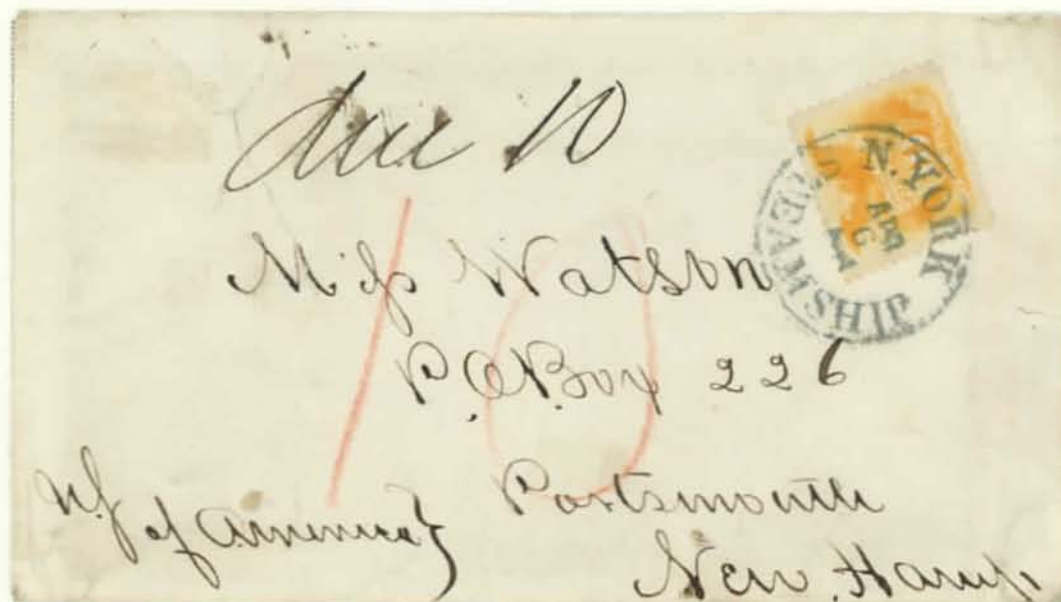 due 10
10
N. YORK
STEAMSHIP
APR
6
Miss Watson
P.O. Box 226
Portsmouth
New. Hamp.
of America